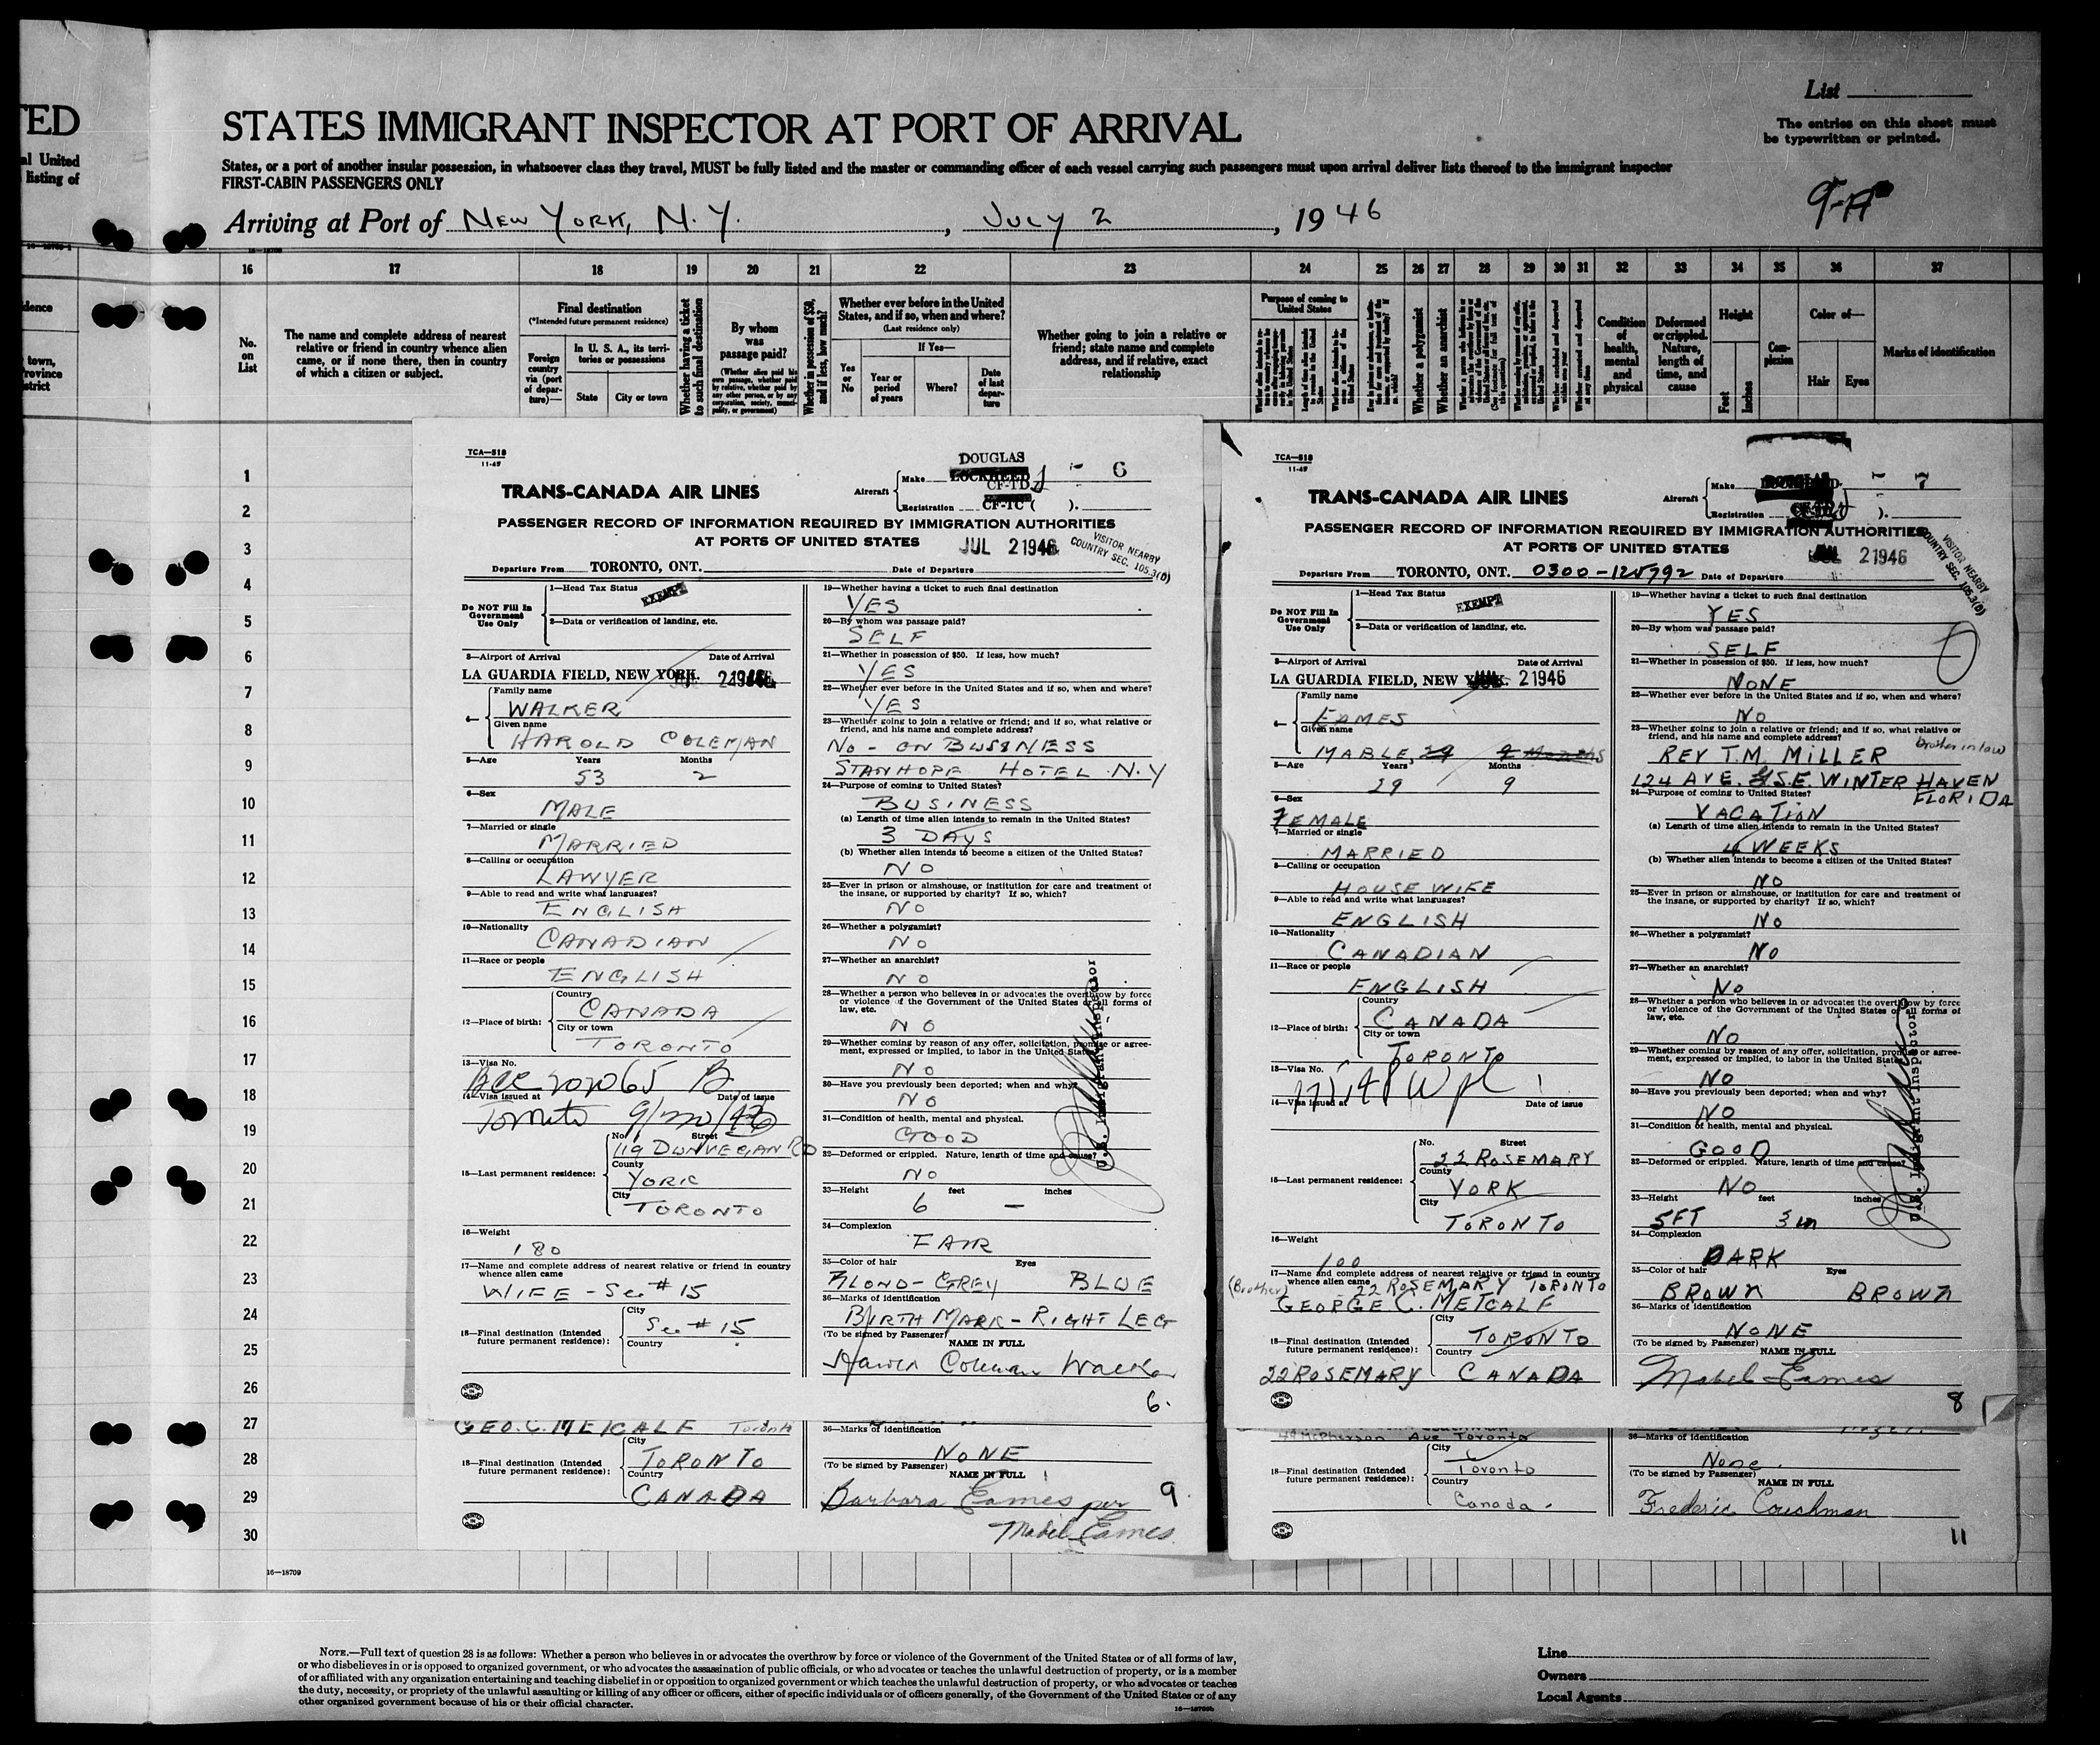 TED
al United
listing of
List
STATES IMMIGRANT INSPECTOR AT PORT OF ARRIVAL
The entries on this sheet must
be typewritten or printed.
States, or a port of another insular possession, in whatsoever class they travel, MUST be fully listed and the master or commanding officer of each vessel carrying such passengers must upon arrival deliver lists thereof to the immigrant inspector
FIRST-CABIN PASSENGERS ONLY
Arriving at Port of NEW YORK, N.Y. , JULY 2 , 1946
16 17 18 19 20 21 22 23 24 25 26 27 28 29 30 31 32 33 34 35 36 37
dence
town,
rovince
strict
No.
on
List
The name and complete address of nearest
relative or friend in country whence alien
came, or if none there, then in country
of which a citizen or subject.
Final destination
(*Intended future permanent residence)
Foreign
country
via (port
of depar-
ture)—
In U. S. A., its terri-
tories or possessions
State
City or town
Whether having a ticket
to such final destination
By whom
was
passage paid?
(Whether alien paid his
own passage, whether paid
by relative, whether paid by
any other person, or by any
corporation, society, munici-
pality, or government)
Whether in possession of $50,
and if less, how much?
Whether ever before in the United
States, and if so, when and where?
(Last residence only)
Yes
or
No
If Yes—
Year or
period
of years
Where?
Date
of last
depar-
ture
Whether going to join a relative or
friend; state name and complete
address, and if relative, exact
relationship
Purpose of coming to
United States
Whether a polygamist
Whether an anarchist
Condition
of
health,
mental
and
physical
Deformed
or crippled.
Nature,
length of
time, and
cause
Height
Feet
Inches
Com-
plexion
Color of—
Hair
Eyes
Marks of identification
1
2
3
4
5
6
7
8
9
10
11
12
13
14
15
16
17
18
19
20
21
22
23
24
25
26
27
28
29
30
TCA—518
11-45
TRANS-CANADA AIR LINES
Aircraft
Make DOUGLAS
LOCKHEED
- 6
CF-TD J
Registration CF-TC ( ).
PASSENGER RECORD OF INFORMATION REQUIRED BY IMMIGRATION AUTHORITIES
AT PORTS OF UNITED STATES
JUL 2 1946
VISITOR NEARBY
COUNTRY SEC. 105.3(D)
Departure From TORONTO, ONT. Date of Departure
Do NOT Fill In
Government
Use Only
1—Head Tax Status
EXEMPT
2—Data or verification of landing, etc.
3—Airport of Arrival Date of Arrival
LA GUARDIA FIELD, NEW YORK. JUL 2 1946
4—
Family name
WALKER
Given name
HAROLD COLEMAN
5—Age Years Months
53 2
6—Sex
MALE
7—Married or single
MARRIED
8—Calling or occupation
LAWYER
9—Able to read and write what languages?
ENGLISH
10—Nationality
CANADIAN
11—Race or people
ENGLISH
12—Place of birth:
Country
CANADA
City or town
TORONTO
13—Visa No.
14—Visa issued at Date of issue
Toronto
15—Last permanent residence:
No. Street
119 DUNVEGAN RD
County
YORK
City
TORONTO
16—Weight
180
17—Name and complete address of nearest relative or friend in country
whence alien came
WIFE - See # 15
18—Final destination (Intended
future permanent residence):
City
See # 15
Country
19—Whether having a ticket to such final destination
YES
20—By whom was passage paid?
SELF
21—Whether in possession of $50. If less, how much?
YES
22—Whether ever before in the United States and if so, when and where?
YES
23—Whether going to join a relative or friend; and if so, what relative or
friend, and his name and complete address?
NO - ON BUSINESS
STANHOPE HOTEL N.Y
24—Purpose of coming to United States?
BUSINESS
(a) Length of time alien intends to remain in the United States?
3 DAYS
(b) Whether alien intends to become a citizen of the United States?
NO
25—Ever in prison or almshouse, or institution for care and treatment of
the insane, or supported by charity? If so, which?
NO
26—Whether a polygamist?
NO
27—Whether an anarchist?
NO
28—Whether a person who believes in or advocates the overthrow by force
or violence of the Government of the United States or all forms of
law, etc.
NO
29—Whether coming by reason of any offer, solicitation, promise or agree-
ment, expressed or implied, to labor in the United States?
NO
30—Have you previously been deported; when and why?
NO
31—Condition of health, mental and physical.
GOOD
32—Deformed or crippled. Nature, length of time and cause?
NO
33—Height feet inches
6 —
34—Complexion
FAIR
35—Color of hair Eyes
BLOND-GREY BLUE
36—Marks of identification
BIRTH MARK - RIGHT LEG
(To be signed by Passenger)
NAME IN FULL
Harold Coleman Walker
6.
U.S. Immigrant Inspector
GEO. C. METCALF Toronto
18—Final destination (Intended
future permanent residence):
City
TORONTO
Country
CANADA
36—Marks of identification
NONE
(To be signed by Passenger)
NAME IN FULL
Barbara Eames per
Mabel Eames
9
TCA—518
11-45
TRANS-CANADA AIR LINES
Aircraft
Make
- 7
Registration ).
PASSENGER RECORD OF INFORMATION REQUIRED BY IMMIGRATION AUTHORITIES
AT PORTS OF UNITED STATES
JUL 2 1946
VISITOR NEARBY
COUNTRY SEC. 105.3(D)
Departure From TORONTO, ONT. 0300-125792 Date of Departure
Do NOT Fill In
Government
Use Only
1—Head Tax Status
EXEMPT
2—Data or verification of landing, etc.
3—Airport of Arrival Date of Arrival
LA GUARDIA FIELD, NEW YORK. 2 1946
4—
Family name
EAMES
Given name
MABLE, 29 9 Months
5—Age Years Months
29 9
6—Sex
FEMALE
7—Married or single
MARRIED
8—Calling or occupation
HOUSE WIFE
9—Able to read and write what languages?
ENGLISH
10—Nationality
CANADIAN
11—Race or people
ENGLISH
12—Place of birth:
Country
CANADA
City or town
TORONTO
13—Visa No.
14—Visa issued at Date of issue
15—Last permanent residence:
No. Street
22 ROSEMARY
County
YORK
City
TORONTO
16—Weight
100
17—Name and complete address of nearest relative or friend in country
whence alien came 22 ROSEMARY TORONTO
(Brother) GEORGE C. METCALF
18—Final destination (Intended
future permanent residence):
City
TORONTO
Country
22 ROSEMARY CANADA
19—Whether having a ticket to such final destination
YES
20—By whom was passage paid?
SELF
21—Whether in possession of $50. If less, how much?
NONE
22—Whether ever before in the United States and if so, when and where?
NO
23—Whether going to join a relative or friend; and if so, what relative or
friend, and his name and complete address?
REV T.M. MILLER brother in law
124 AVE. S.E. WINTER HAVEN
FLORIDA
24—Purpose of coming to United States?
VACATION
(a) Length of time alien intends to remain in the United States?
4 WEEKS
(b) Whether alien intends to become a citizen of the United States?
NO
25—Ever in prison or almshouse, or institution for care and treatment of
the insane, or supported by charity? If so, which?
NO
26—Whether a polygamist?
NO
27—Whether an anarchist?
NO
28—Whether a person who believes in or advocates the overthrow by force
or violence of the Government of the United States or all forms of
law, etc.
NO
29—Whether coming by reason of any offer, solicitation, promise or agree-
ment, expressed or implied, to labor in the United States?
NO
30—Have you previously been deported; when and why?
NO
31—Condition of health, mental and physical.
GOOD
32—Deformed or crippled. Nature, length of time and cause?
NO
33—Height feet inches
5FT 3 in
34—Complexion
DARK
35—Color of hair Eyes
BROWN BROWN
36—Marks of identification
NONE
(To be signed by Passenger)
NAME IN FULL
Mabel Eames
8
U.S. Immigrant Inspector
McPherson Ave Toronto
18—Final destination (Intended
future permanent residence):
City
Toronto
Country
Canada
36—Marks of identification
None.
(To be signed by Passenger)
NAME IN FULL
Frederic Couchman
11
16—18709
NOTE.—Full text of question 28 is as follows: Whether a person who believes in or advocates the overthrow by force or violence of the Government of the United States or of all forms of law,
or who disbelieves in or is opposed to organized government, or who advocates the assassination of public officials, or who advocates or teaches the unlawful destruction of property, or is a member
of or affiliated with any organization entertaining and teaching disbelief in or opposition to organized government or which teaches the unlawful destruction of property, or who advocates or teaches
the duty, necessity, or propriety of the unlawful assaulting or killing of any officer or officers, either of specific individuals or of officers generally, of the Government of the United States or of any
other organized government because of his or their official character.
Line
Owners
Local Agents